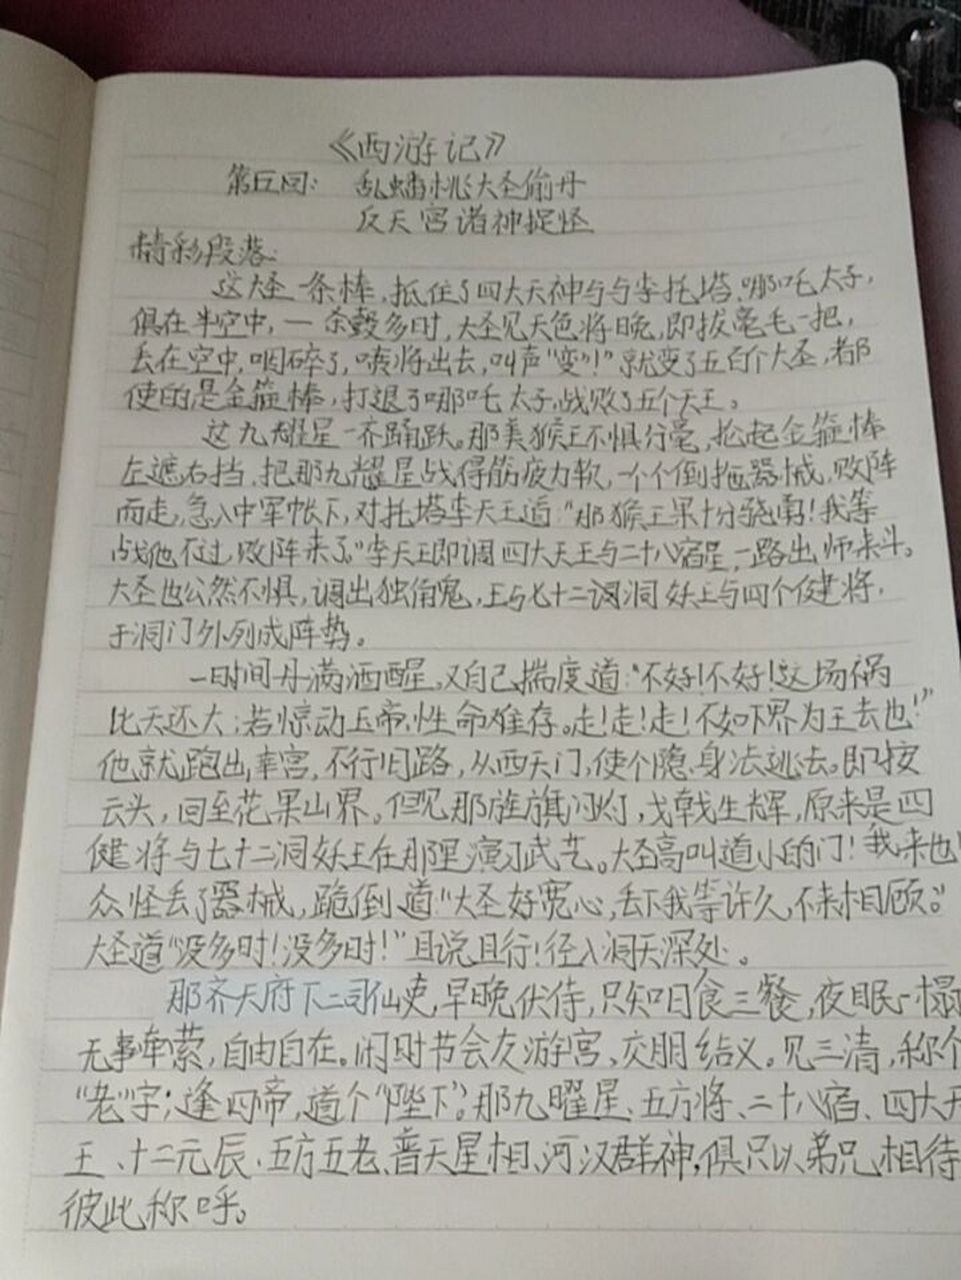 《西游记》
第五回: 乱蟠桃大圣偷丹
反天宫诸神捉怪
精彩段落:
这大圣一条棒,抵住了四大天神与与李托塔、哪吒太子,
俱在半空中,一杀毂多时,大圣见天色将晚,即拔毫毛一把,
丢在空中,咽碎了,喷将出去,叫声"变!"就变了五百个大圣,都
使的是金箍棒,打退了哪吒太子,战败了五个天王。
这九耀星一齐踊跃。那美猴王不惧分毫,抡起金箍棒
左遮右挡,把那九耀星战得筋疲力软,一个个倒拖器械,败阵
而走,急入中军帐下,对托塔李天王道:"那猴王果十分骁勇!我等
战他不过,败阵来了。"李天王即调四大天王与二十八宿星,一路出师来斗。
大圣也公然不惧,调出独角鬼,王与七十二洞妖王与四个健将,
于洞门外列成阵势。
一时间丹满酒醒,又自己揣度道:"不好!不好!这场祸
比天还大;若惊动玉帝,性命难存。走!走!走!不如下界为王去也!"
他就跑出率宫,不行旧路,从西天门,使个隐身法逃去。即按
云头,回至花果山界。但见那旌旗闪灼,戈戟生辉,原来是四
健将与七十二洞妖王在那里演习武艺。大圣高叫道小的门!我来也!
众怪丢了器械,跪倒道:"大圣好宽心,丢下我等许久,不来相顾。"
大圣道"没多时!没多时!"且说且行!径入洞天深处。
那齐天府下二司仙吏,早晚伏侍,只知日食三餐,夜眠一榻
无事牵萦,自由自在。闲时节会友游宫,交朋结义。见三清,称个
"老"字;逢四帝,道个"陛下"。那九曜星、五方将、二十八宿、四大天
王、十二元辰、五方五老、普天星相、河汉群神,俱只以弟兄相待
彼此称呼。